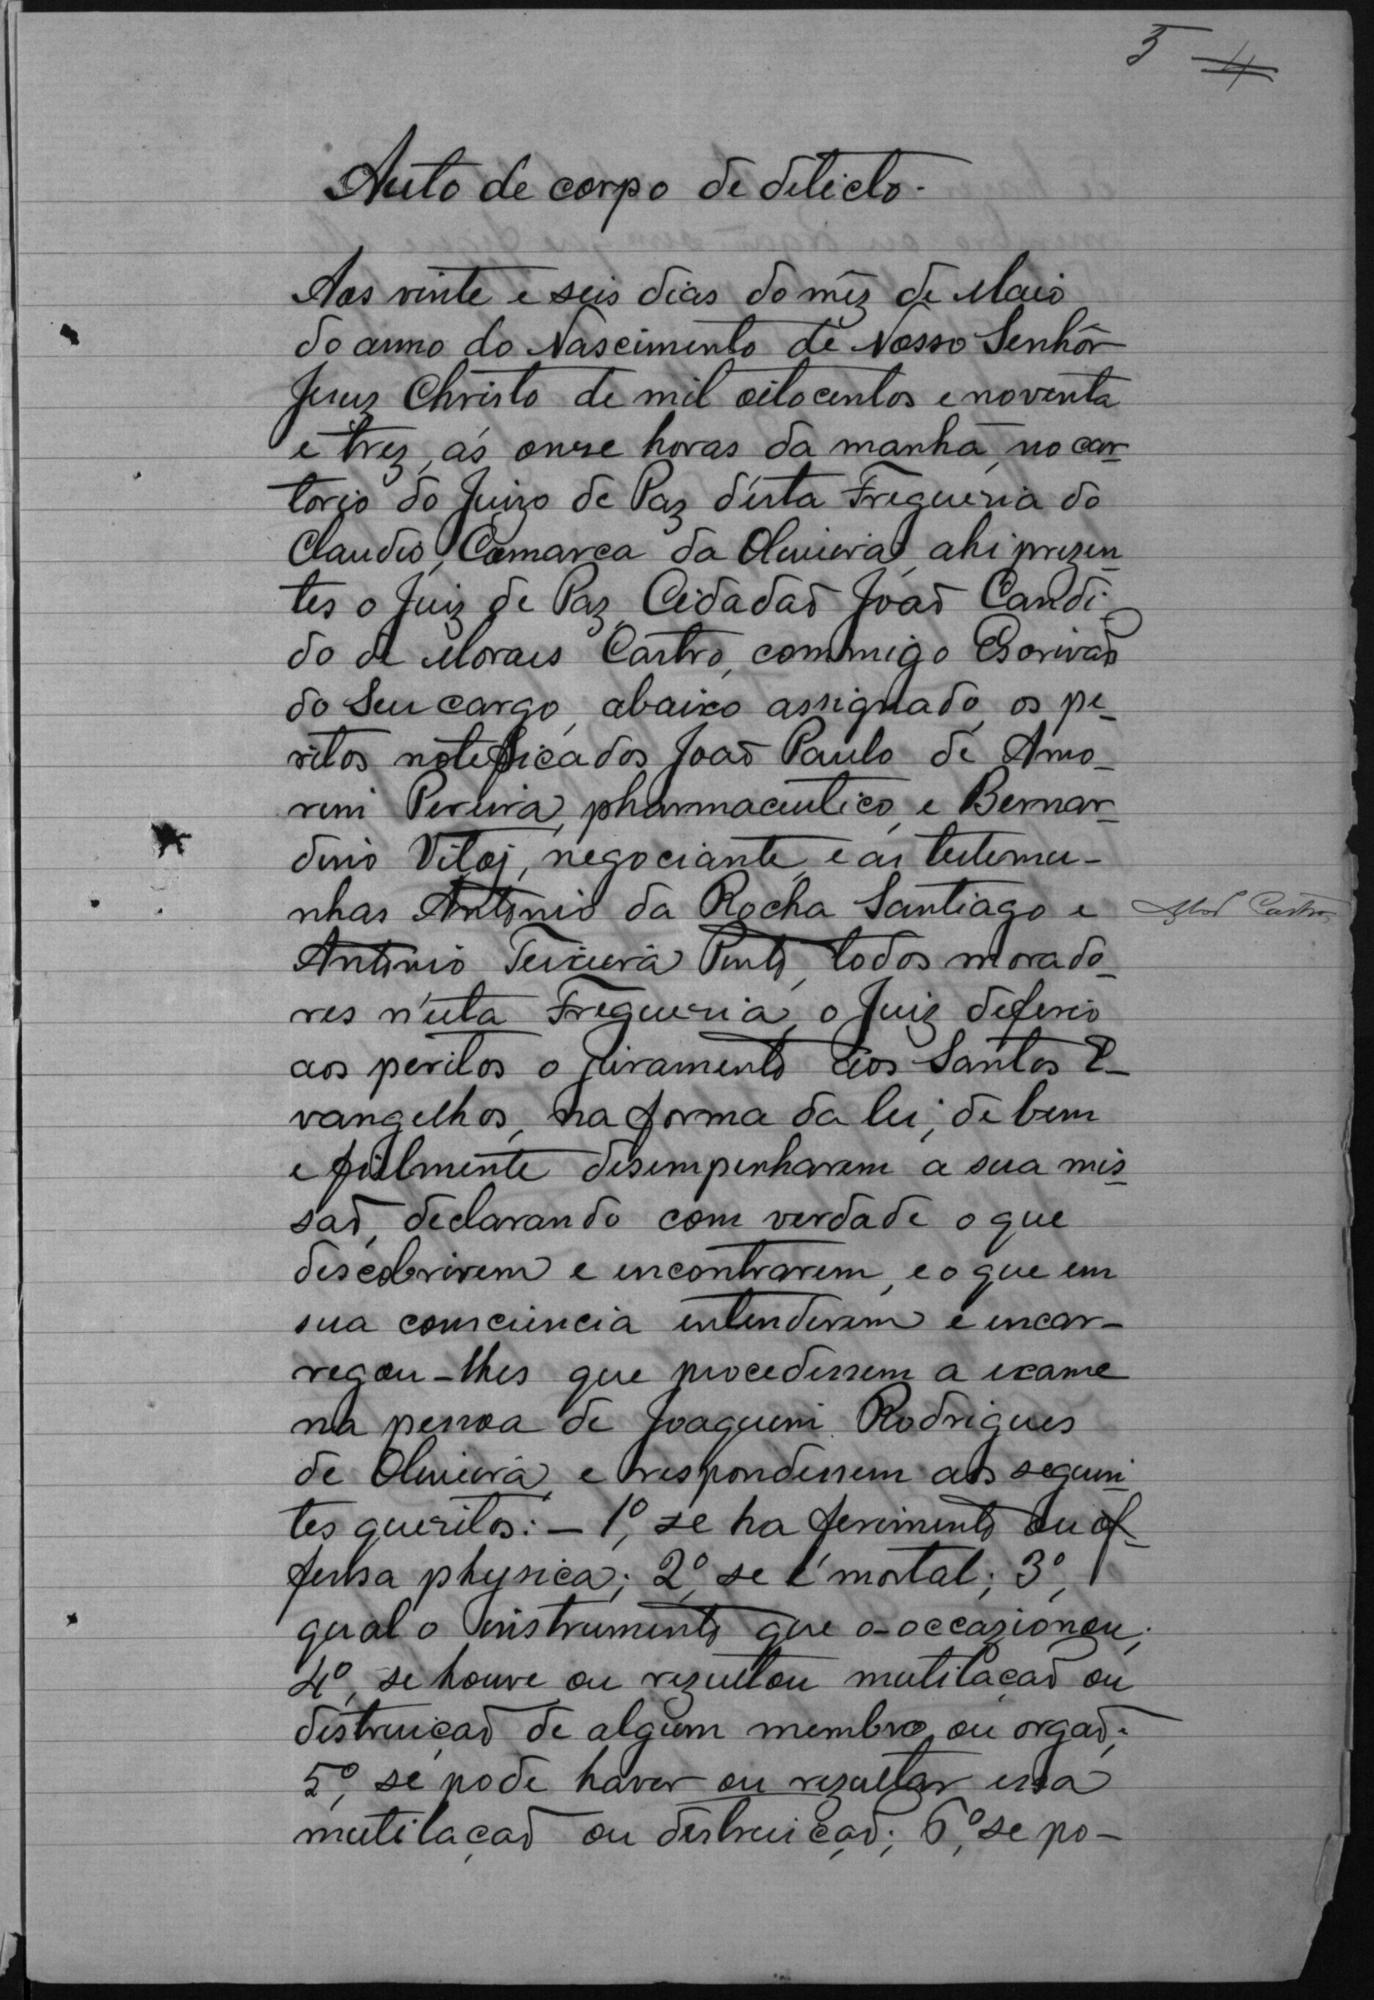 5 4
Auto de corpo de delicto.
Aos vinte e seis dias do mêz de Maio
do anno do Nascimento de Nosso Senhôr
Jesuz Christo de mil oitocentos e noventa
e trez, ás onze horas da manhã, no car-
torio do Juizo de Paz d'esta Freguezia do
Claudio, Comarca da Oliveira, ahi prezen-
tes o Juiz de Paz, Cidadaõ Joaõ Candi-
do de Moraes Castro, commigo Escrivaõ
do Seu cargo, abaixo assignado, os pe-
ritos noteficados Joaõ Paulo de Amo-
rim Pereira, pharmaceutico, e Bernar-
dino Vitoj, negociante, e as testemu-
nhas Antonio da Rocha Santiago e
Castro
Antonio Teixeira Pinto, todos morado-
res n'esta Freguezia, o Juiz deferio
aos peritos o juramento aos Santos E-
vangelhos, na forma da lei, de bem
e fielmente desempenharem a sua mis-
saõ, declarando com verdade o que
descobrirem e encontrarem, e o que em
sua consciencia entenderem e encar-
regou-lhes que procedessem a exame
na pessoa de Joaquim Rodrigues
de Oliveira, e respondessem aos seguin-
tes quezitos: - 1º, se ha ferimento ou of-
fensa physica; 2º, se é mortal; 3º,
qual o instrumento que o-occazionou;
4º, se houve ou rezultou mutilaçaõ ou
distruiçaõ de algum membro ou orgaõ;
5º, se pode haver ou rezultar essa
mutilaçaõ ou destruiçaõ; 6º, se po-